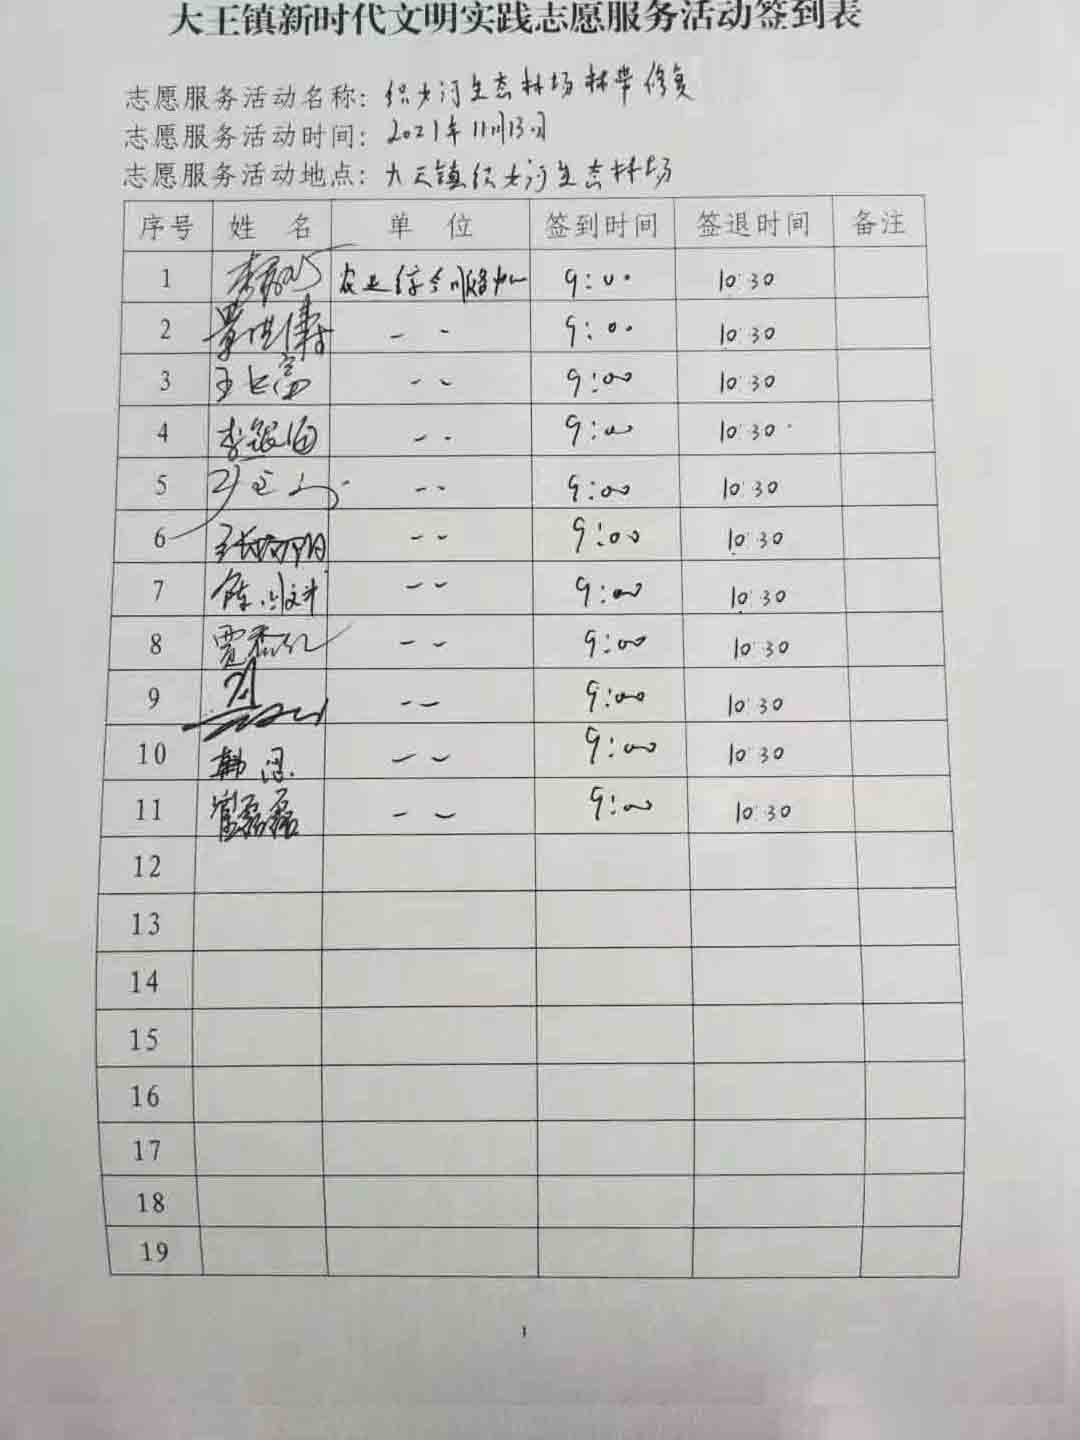 大王镇新时代文明实践志愿服务活动签到表
志愿服务活动名称：织女河生态林场林带修复
志愿服务活动时间：2021年11月13日
志愿服务活动地点：大王镇织女河生态林场
序号 姓 名 单 位 签到时间 签退时间 备注
1 农业综合服务中心 9:00 10:30
2 9:00 10:30
3 王长富 9:00 10:30
4 李银海 9:00 10:30
5 9:00 10:30
6 9:00 10:30
7 9:00 10:30
8 9:00 10:30
9 9:00 10:30
10 韩 9:00 10:30
11 磊磊 9:00 10:30
12
13
14
15
16
17
18
19
1